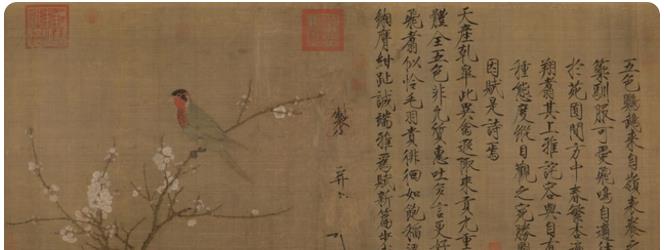 五色鸚鵡來自嶺表養之
禁籞馴服可愛飛鳴自適往
於苑囿間方中春繁杏遍
翔翥其上雅詫容與自有
種態度縱目觀之宛勝
因賦是詩焉
天產乾皋此異禽遐陬來貢九重
體全五色非凡質惠吐多言更好
飛翥似憐毛羽貴徘徊如飽稻
緗膺紺趾誠端雅為賦新篇步
製 并